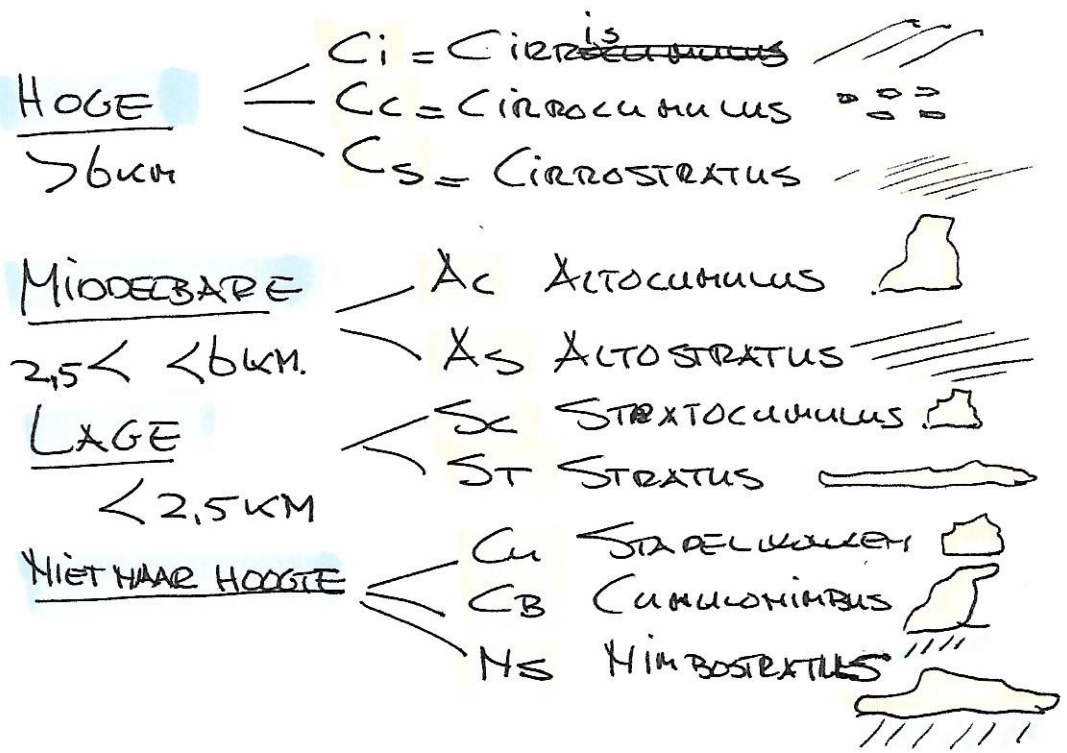 Ci = CIRRis
HOGE
Cc = CIRROCUMULUS
>6KM
Cs = CIRROSTRATUS
MIDDELBARE
Ac ALTOCUMULUS
As ALTOSTRATUS
2,5< <6KM.
LAGE
Sc STRATOCUMULUS
ST STRATUS
<2,5KM
NIET NAAR HOOGTE
Cu STAPELWOLKEN
CB CUMULONIMBUS
NS NIMBOSTRATUS